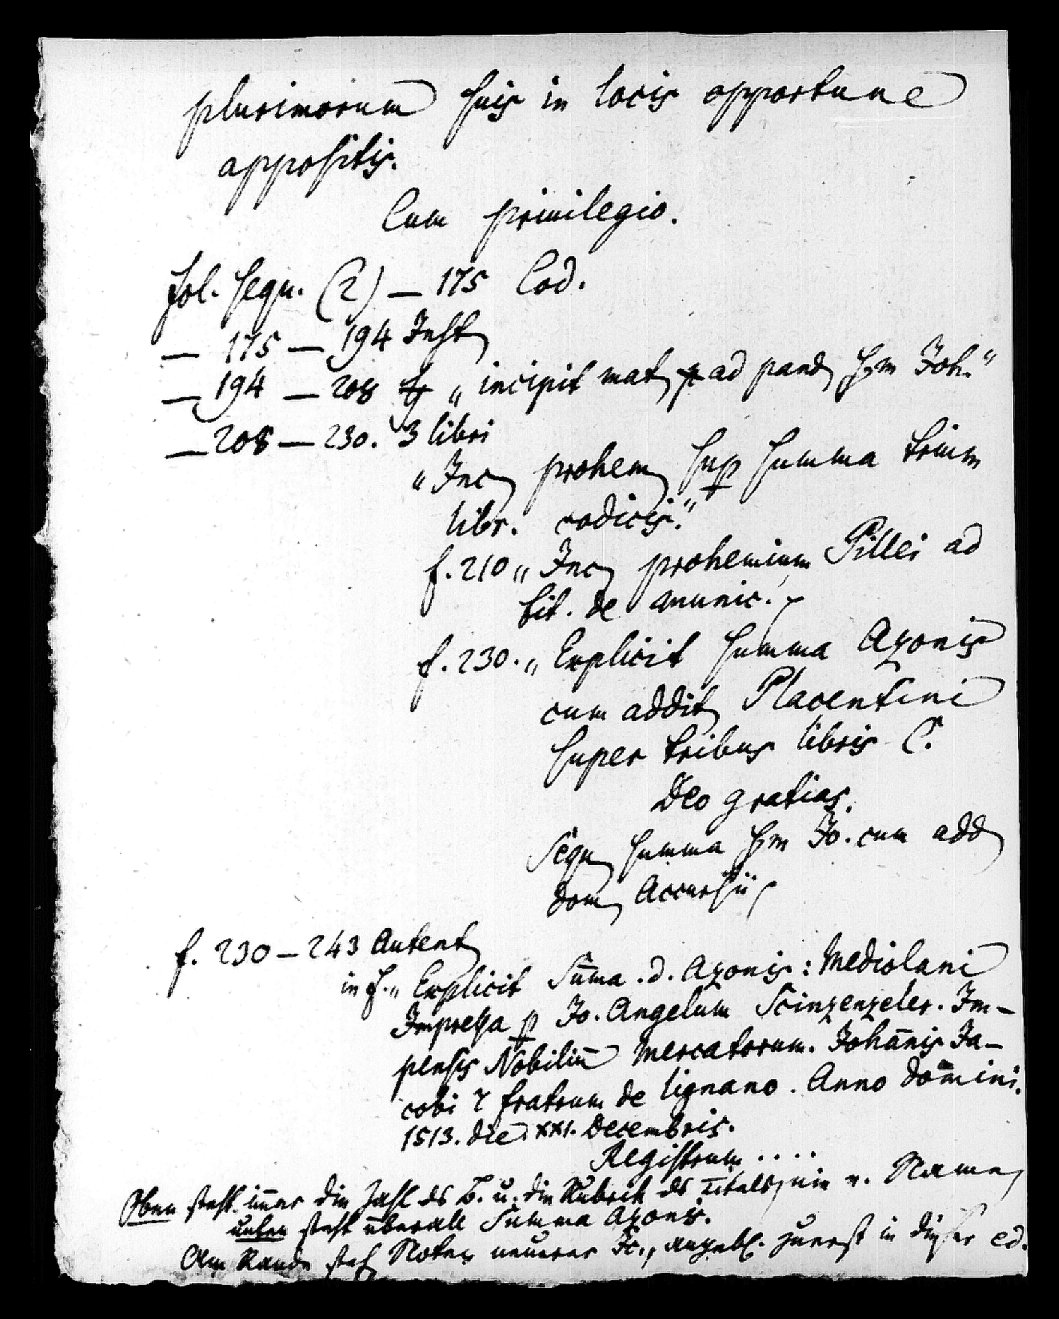 plurimorum suis in locis opportune
appositis.
Cum priuilegio.
fol. sequ. (2) — 175 Cod.
— 175 — 194 Inst
— 194 — 208 „incipit mat ad pand sm Joh.“
— 208 — 230. 3 libri
„Inc prohem sup summa trium
libr. codicis.“
f. 210 „Inc prohemium Pillei ad
tit. de munic.
f. 230. „Explicit summa Azonis
cum addit Placentini
super tribus libris C.
Deo gratias.
Sequ summa sm Jo. cum add
dom Accursii
f. 230 — 243 Autent
in f. „Explicit Sūma . d. Azonis : Mediolani
Impressa p Jo. Angelum Scinzenzeler. Im-
pensis Nobiliū Mercatorum. Johānis Ja-
cobi ⁊ fratrum de lignano . Anno domini.
1513. die. xxi. Decembris.
Registrum ....
Oben steht immer die Zahl ds B. u. die Rubrik ds Titels, nie v. Namen,
unten steht überall Summa Azonis.
Am Rande steh Noten neuerer Jc., angebl. zuerst in dieser ed.